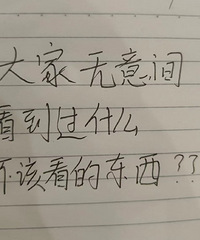 大家无意间
看到过什么
不该看的东西??